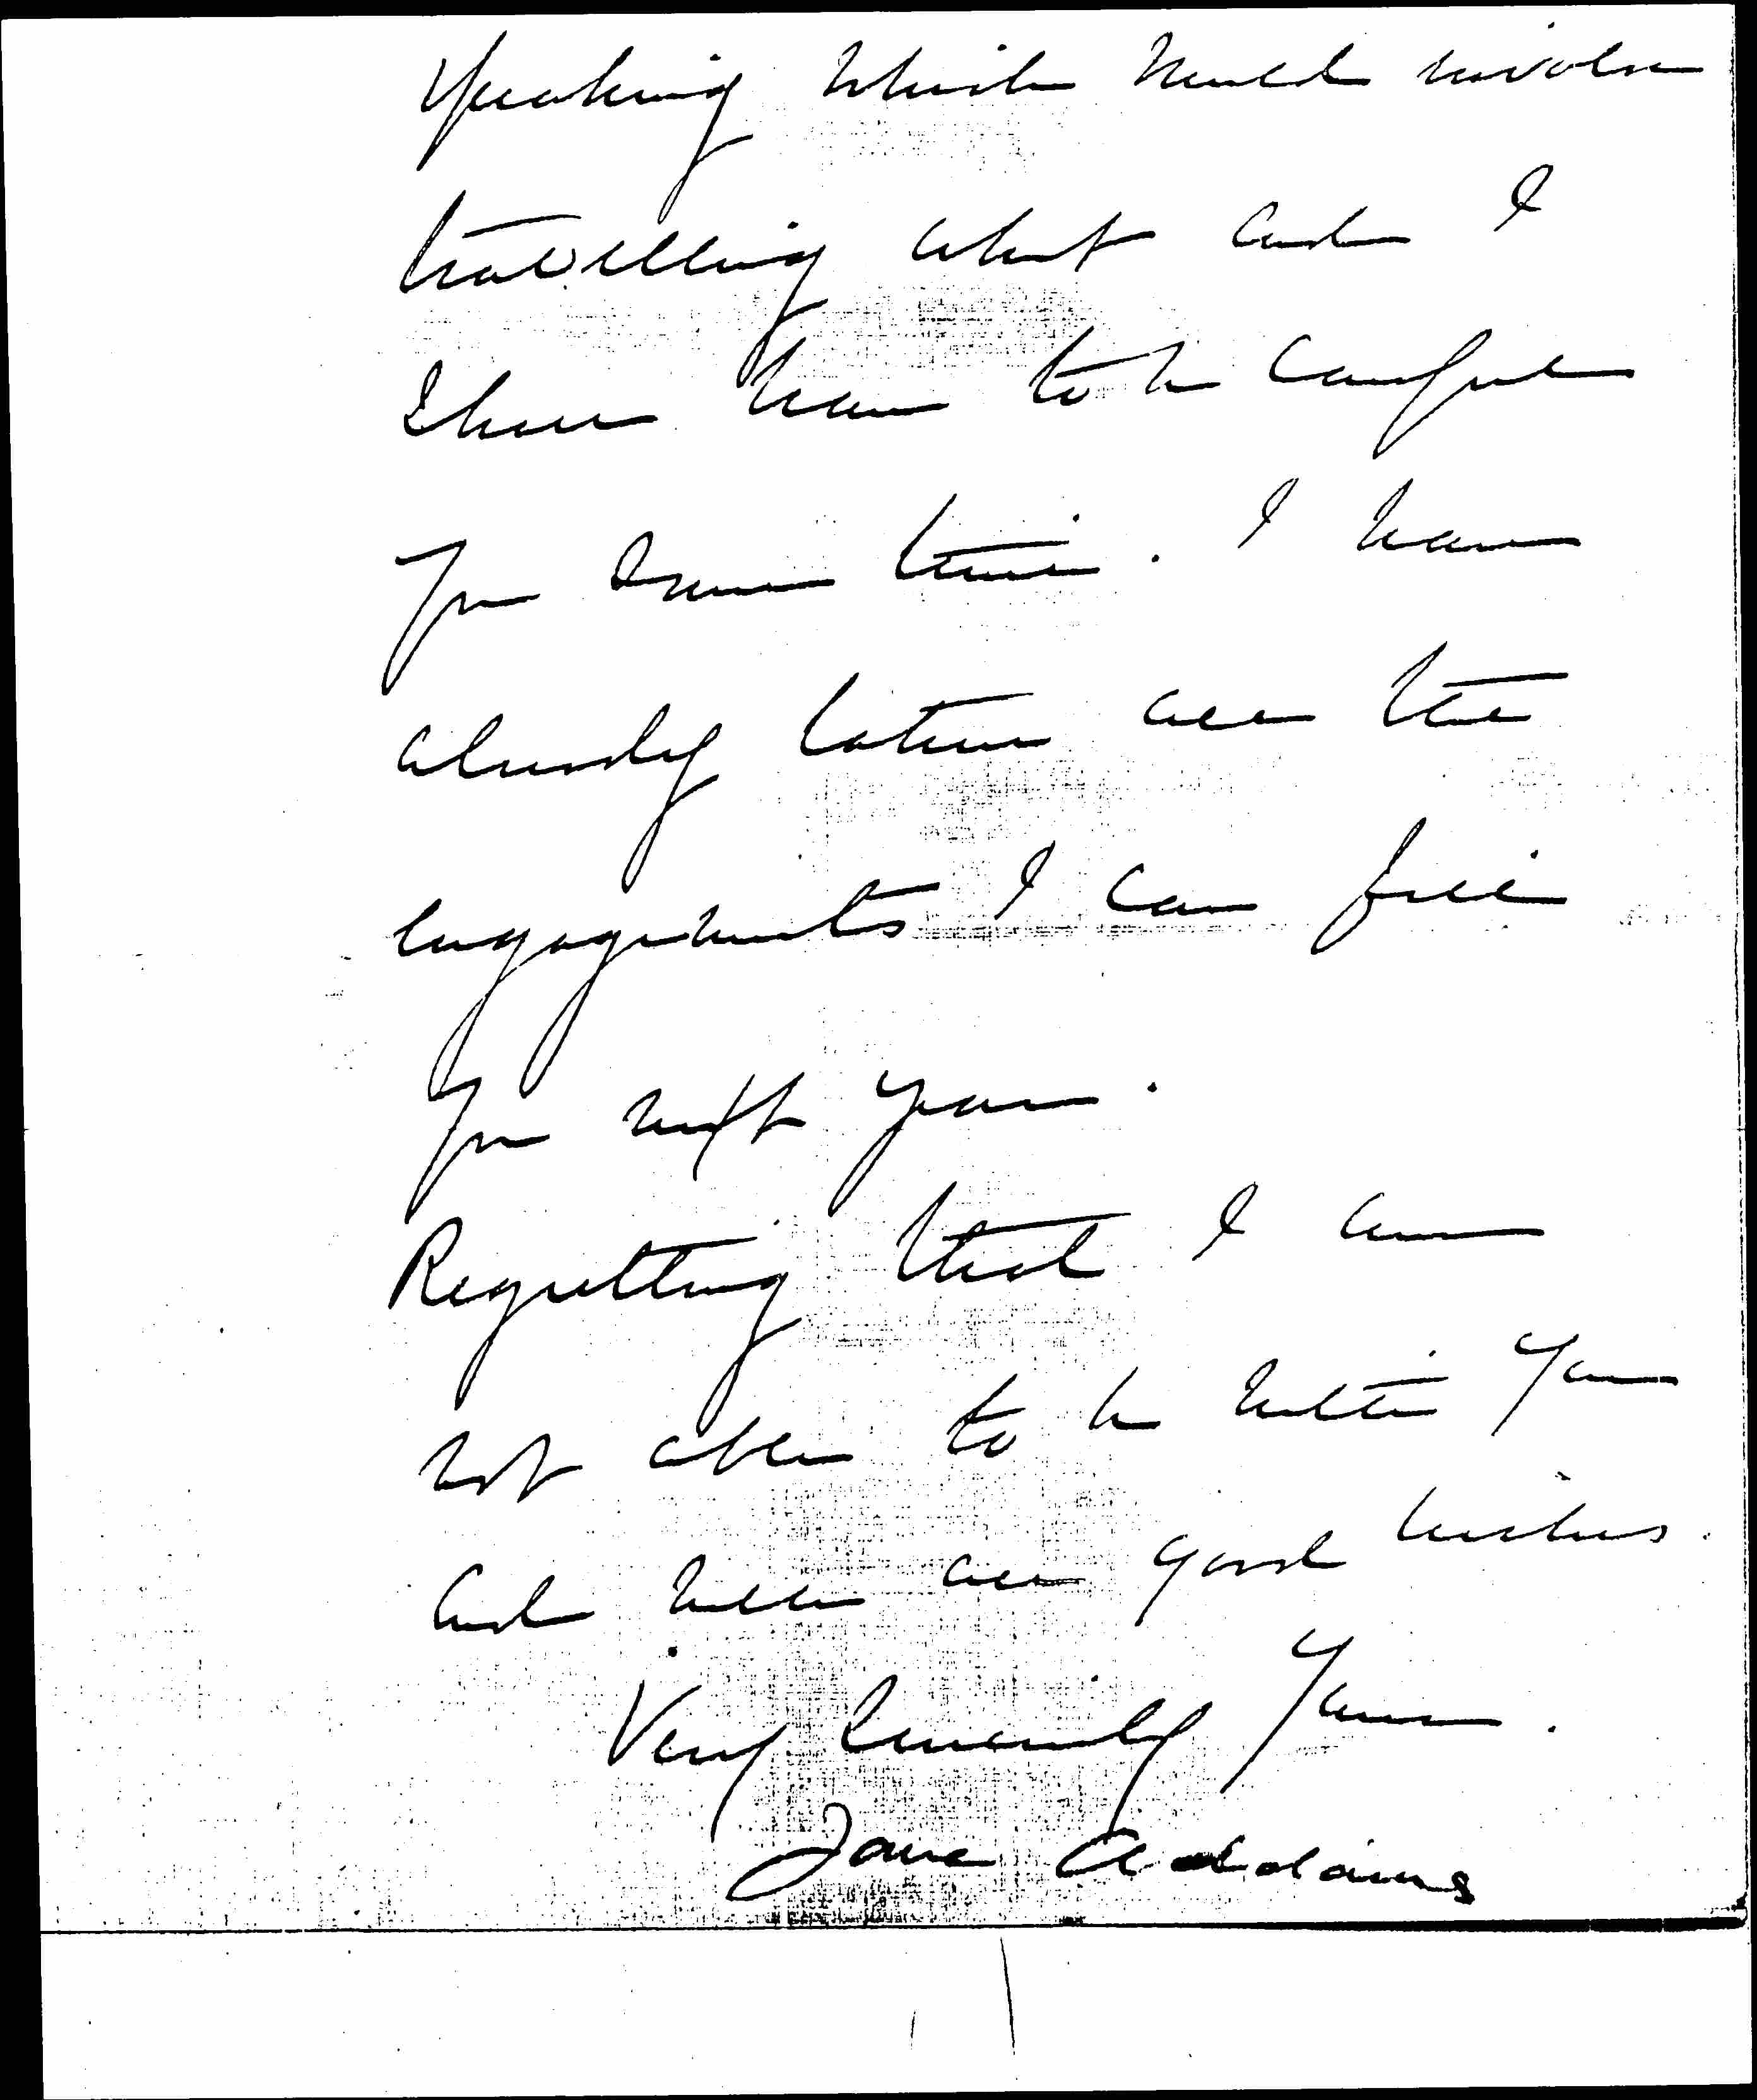 speaking which would involve
travelling about and I
shall have to be careful
for some time. I have
already taken all the
engagements I can fill
for next year.
Regretting that I am
not able to be with you
and with all good wishes.
Very sincerely yours.
Jane Addams